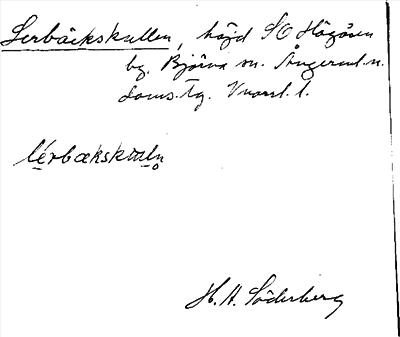 Lerbäckskullen, höjd SO Högåsen
by. Björna sn. Ångerml. n.
doms. tg. Vnorrl. l.
lérbækskuln
H. A. Söderberg